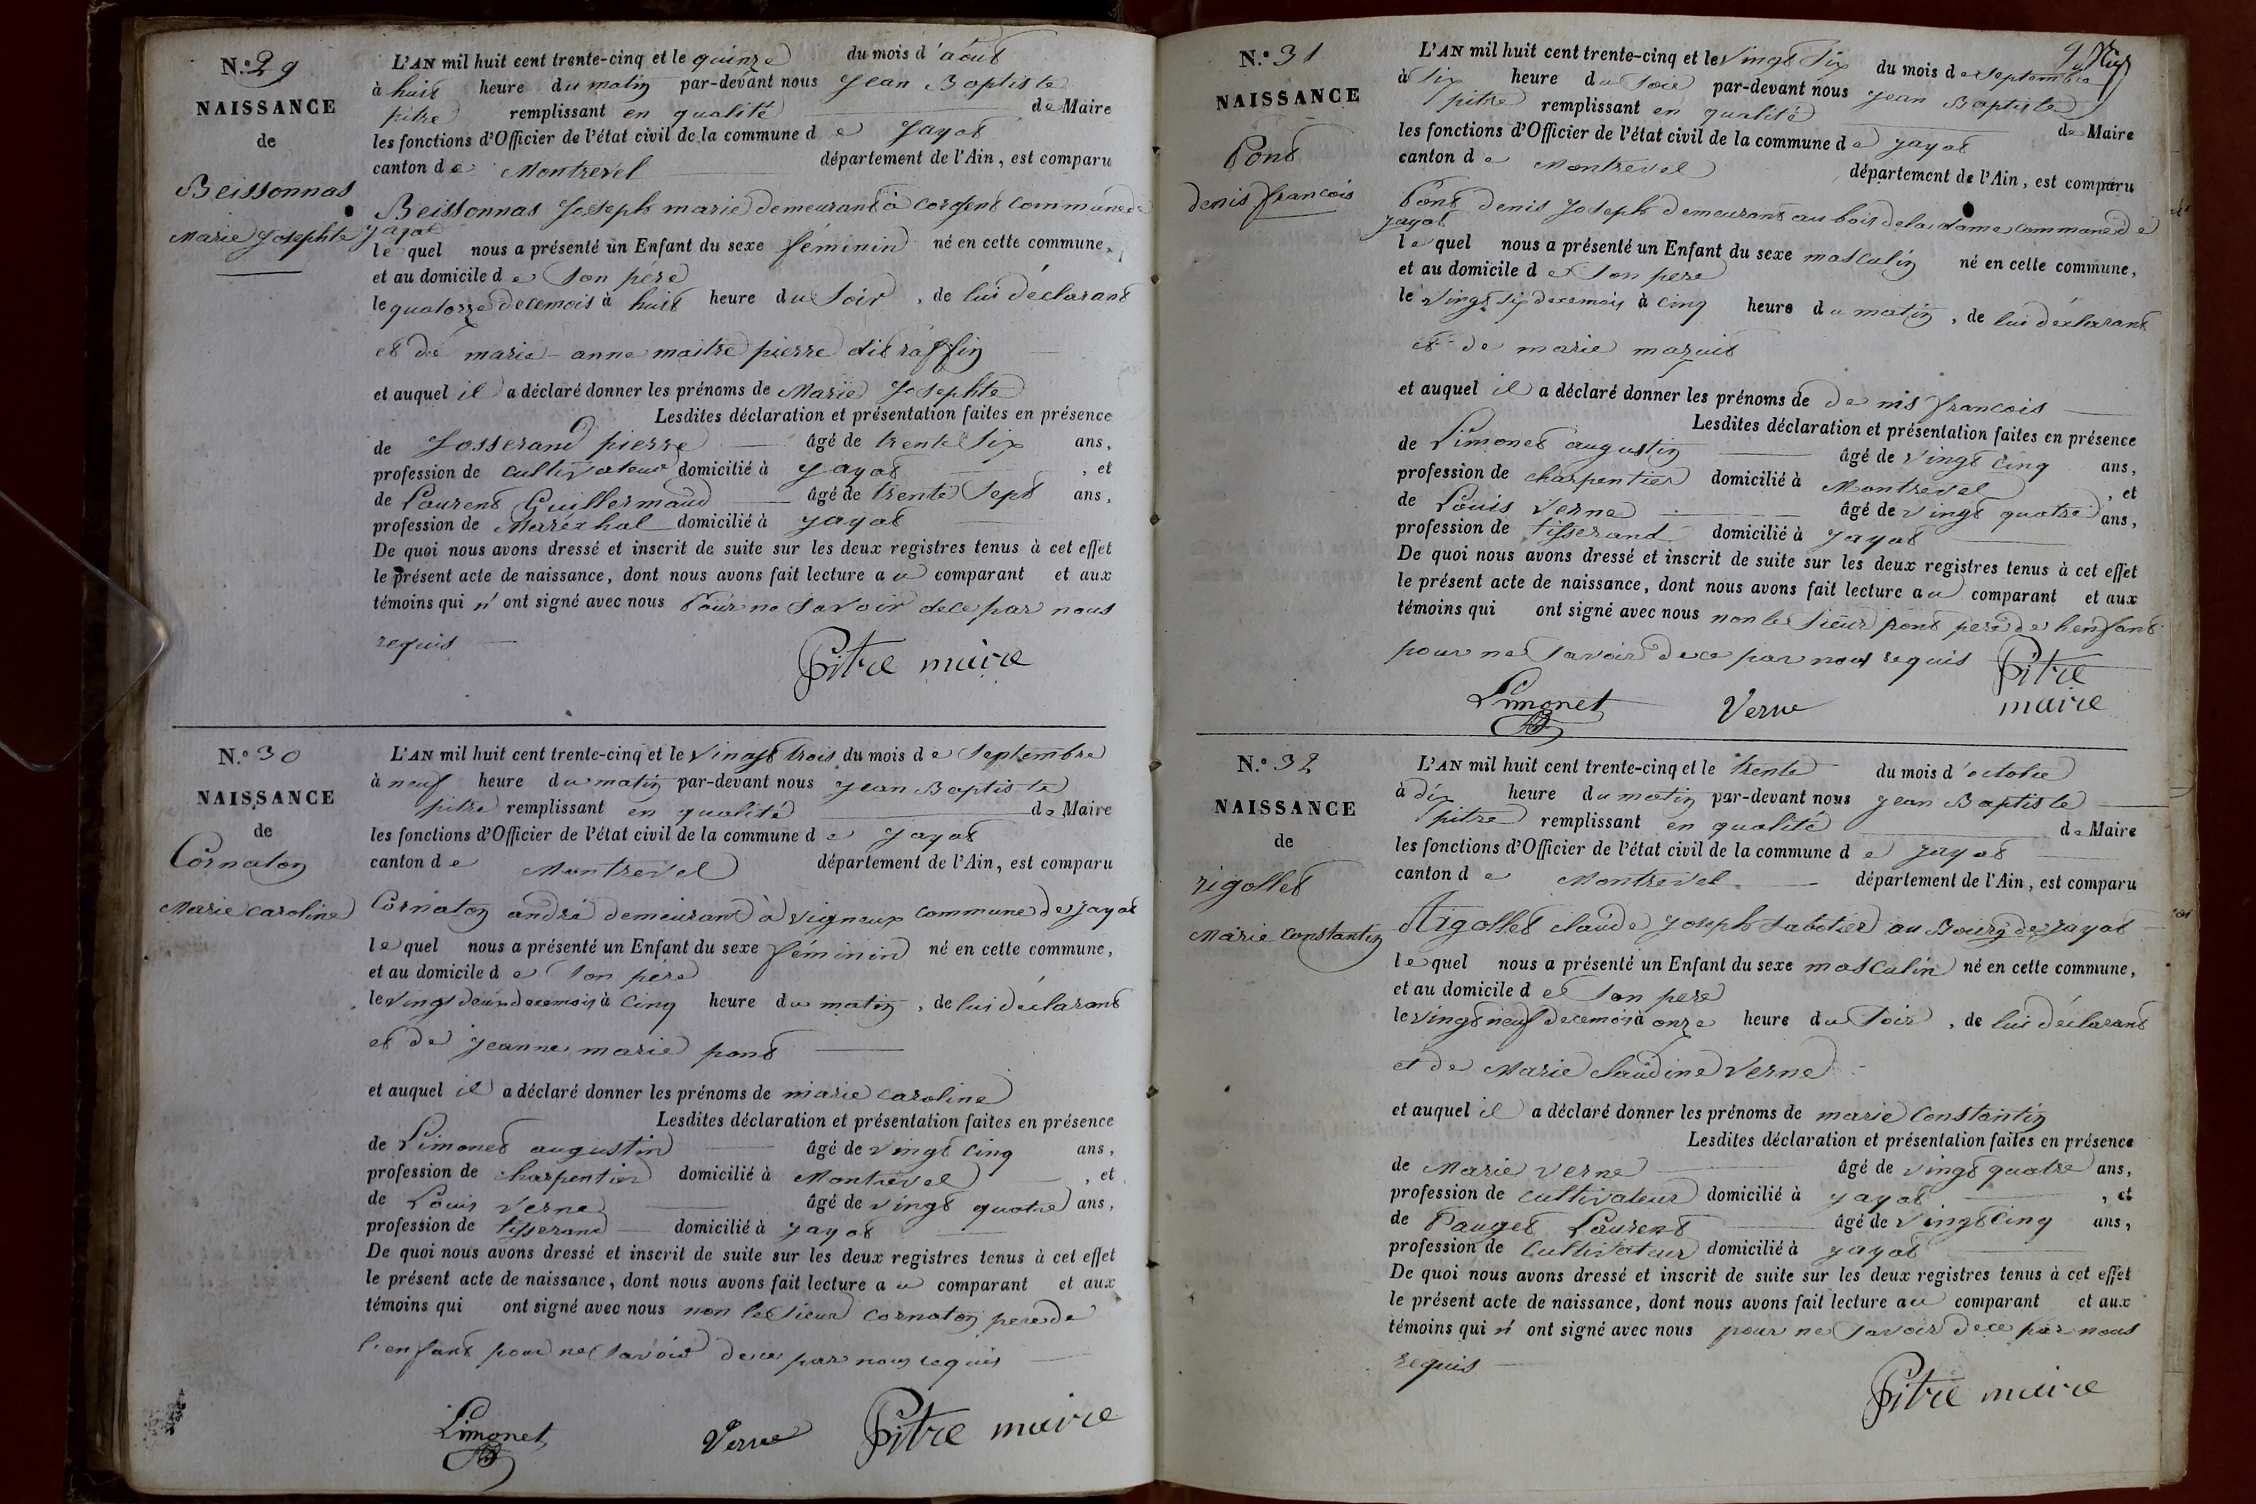 N.o 29
NAISSANCE
de
Beissonnas
Marie Josephte
L'AN mil huit cent trente-cinq et le quinze du mois d'août
à huit heure du matin par-devant nous Jean Baptiste
pitre remplissant en qualité de Maire
les fonctions d'Officier de l'état civil de la commune de Jayat
canton de Montrevel département de l'Ain, est comparu
Beissonnas Joseph marie demeurant à Corgent commune de
Jayat
le quel nous a présenté un Enfant du sexe féminin né en cette commune,
et au domicile de son père
le quatorze de ce mois à huit heure du soir, de lui déclarant
et de marie-anne maitre pierre dit raffin
et auquel il a déclaré donner les prénoms de Marie Josephte
Lesdites déclaration et présentation faites en présence
de Josserand pierre âgé de trente six ans,
profession de cultivateur domicilié à Jayat, et
de Laurent Guillermaud âgé de trente sept ans,
profession de Maréchal domicilié à Jayat
De quoi nous avons dressé et inscrit de suite sur les deux registres tenus à cet effet
le présent acte de naissance, dont nous avons fait lecture au comparant et aux
témoins qui n'ont signé avec nous Pour ne savoir de ce par nous
requis
Pitre maire
N.o 30
NAISSANCE
de
Cornaton
Marie Caroline
L'AN mil huit cent trente-cinq et le vingt trois du mois de Septembre
à neuf heure du matin par-devant nous Jean Baptiste
pitre remplissant en qualité de Maire
les fonctions d'Officier de l'état civil de la commune de Jayat
canton de Montrevel département de l'Ain, est comparu
Cornaton andré demeurant à vigneux commune de Jayat
le quel nous a présenté un Enfant du sexe féminin né en cette commune,
et au domicile de son père
le vingt deux de ce mois à cinq heure du matin, de lui déclarant
et de jeanne marie pont
et auquel il a déclaré donner les prénoms de marie caroline
Lesdites déclaration et présentation faites en présence
de Limonet augustin âgé de vingt cinq ans,
profession de charpentier domicilié à Montrevel, et
de Louis Verne âgé de vingt quatre ans,
profession de tisserand domicilié à Jayat
De quoi nous avons dressé et inscrit de suite sur les deux registres tenus à cet effet
le présent acte de naissance, dont nous avons fait lecture au comparant et aux
témoins qui ont signé avec nous non le sieur Cornaton pere de
l'enfant pour ne savoir de ce par nous requis
Limonet Verne Pitre maire
N.o 31
NAISSANCE
Pont
denis francois
L'AN mil huit cent trente-cinq et le vingt six du mois de septembre
à six heure du soir par-devant nous Jean Baptiste
pitre remplissant en qualité de Maire
les fonctions d'Officier de l'état civil de la commune de Jayat
canton de Montrevel département de l'Ain, est comparu
Pont denis Joseph demeurant au bois de la dame commune de
Jayat
le quel nous a présenté un Enfant du sexe masculin né en cette commune,
et au domicile de son pere
le vingt six de ce mois à cinq heure du matin, de lui déclarant
et de marie marquis
et auquel il a déclaré donner les prénoms de denis francois
Lesdites déclaration et présentation faites en présence
de Limonet augustin âgé de vingt cinq ans,
profession de charpentier domicilié à Montrevel, et
de Louis Verne âgé de vingt quatre ans,
profession de tisserand domicilié à Jayat
De quoi nous avons dressé et inscrit de suite sur les deux registres tenus à cet effet
le présent acte de naissance, dont nous avons fait lecture au comparant et aux
témoins qui ont signé avec nous non le sieur pont pere de l'enfant
pour ne savoir de ce par nous requis
Pitre
maire
Limonet Verne
N.o 32
NAISSANCE
de
rigollet
Marie Constantin
L'AN mil huit cent trente-cinq et le trente du mois d'octobre
à dix heure du matin par-devant nous Jean Baptiste
pitre remplissant en qualité de Maire
les fonctions d'Officier de l'état civil de la commune de Jayat
canton de Montrevel département de l'Ain, est comparu
Rigollet claude Joseph sabotier au Bourg de Jayat
le quel nous a présenté un Enfant du sexe masculin né en cette commune,
et au domicile de son pere
le vingt neuf de ce mois à onze heure du soir, de lui déclarant
et de Marie claudine Verne
et auquel il a déclaré donner les prénoms de marie Constantin
Lesdites déclaration et présentation faites en présence
de Marie verne âgé de vingt quatre ans,
profession de cultivateur domicilié à Jayat, et
de Pauget Laurent âgé de vingt cinq ans,
profession de cultivateur domicilié à Jayat
De quoi nous avons dressé et inscrit de suite sur les deux registres tenus à cet effet
le présent acte de naissance, dont nous avons fait lecture au comparant et aux
témoins qui n'ont signé avec nous pour ne savoir de ce par nous
requis
Pitre maire